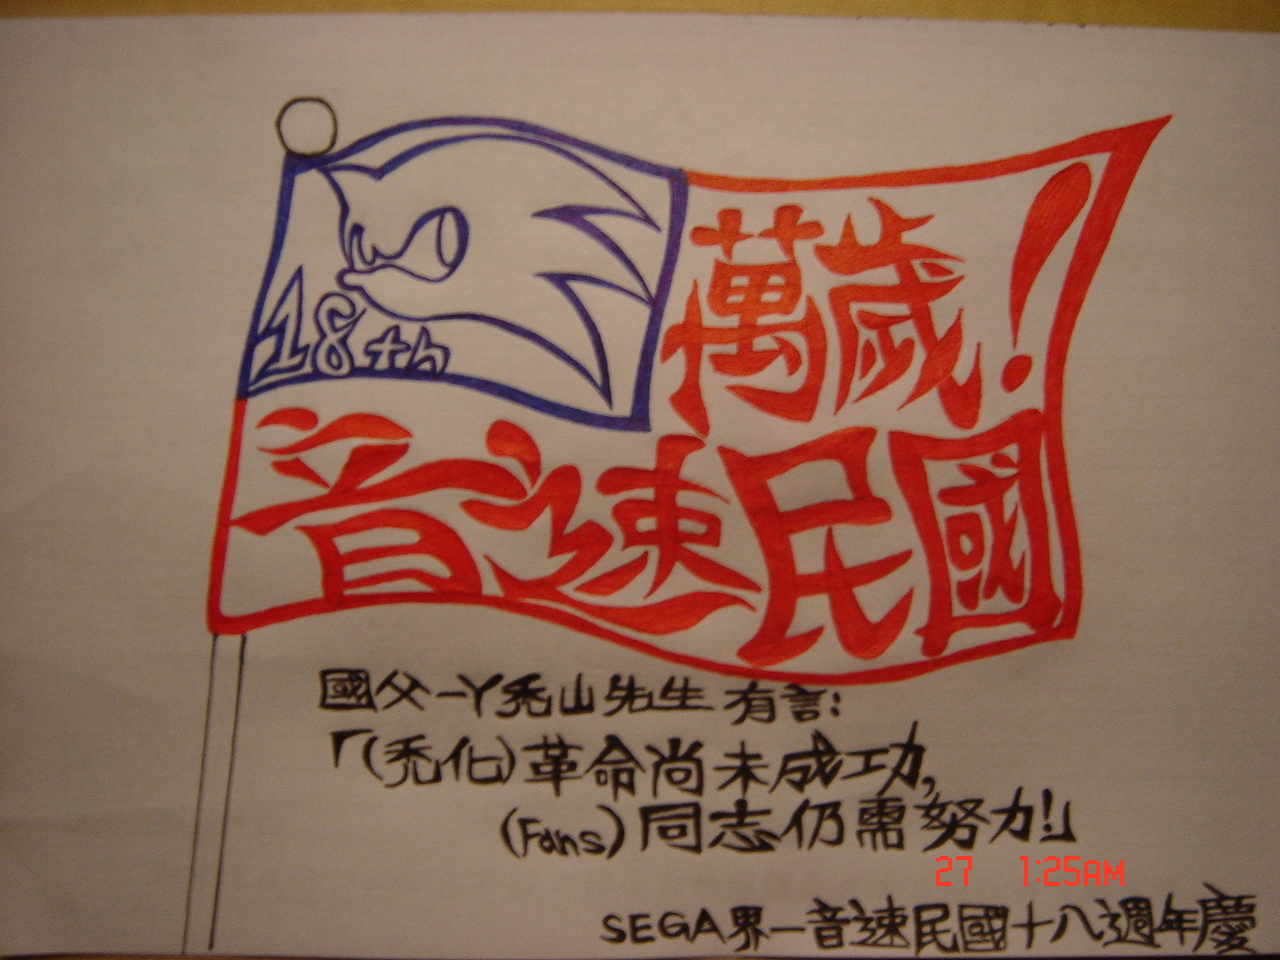 18th
萬歲!
音速民國
國父一丫禿山先生 有言:
「(禿化)革命尚未成功,
(Fans)同志仍需努力!」
27 1:25AM
SEGA界一音速民國十八週年慶